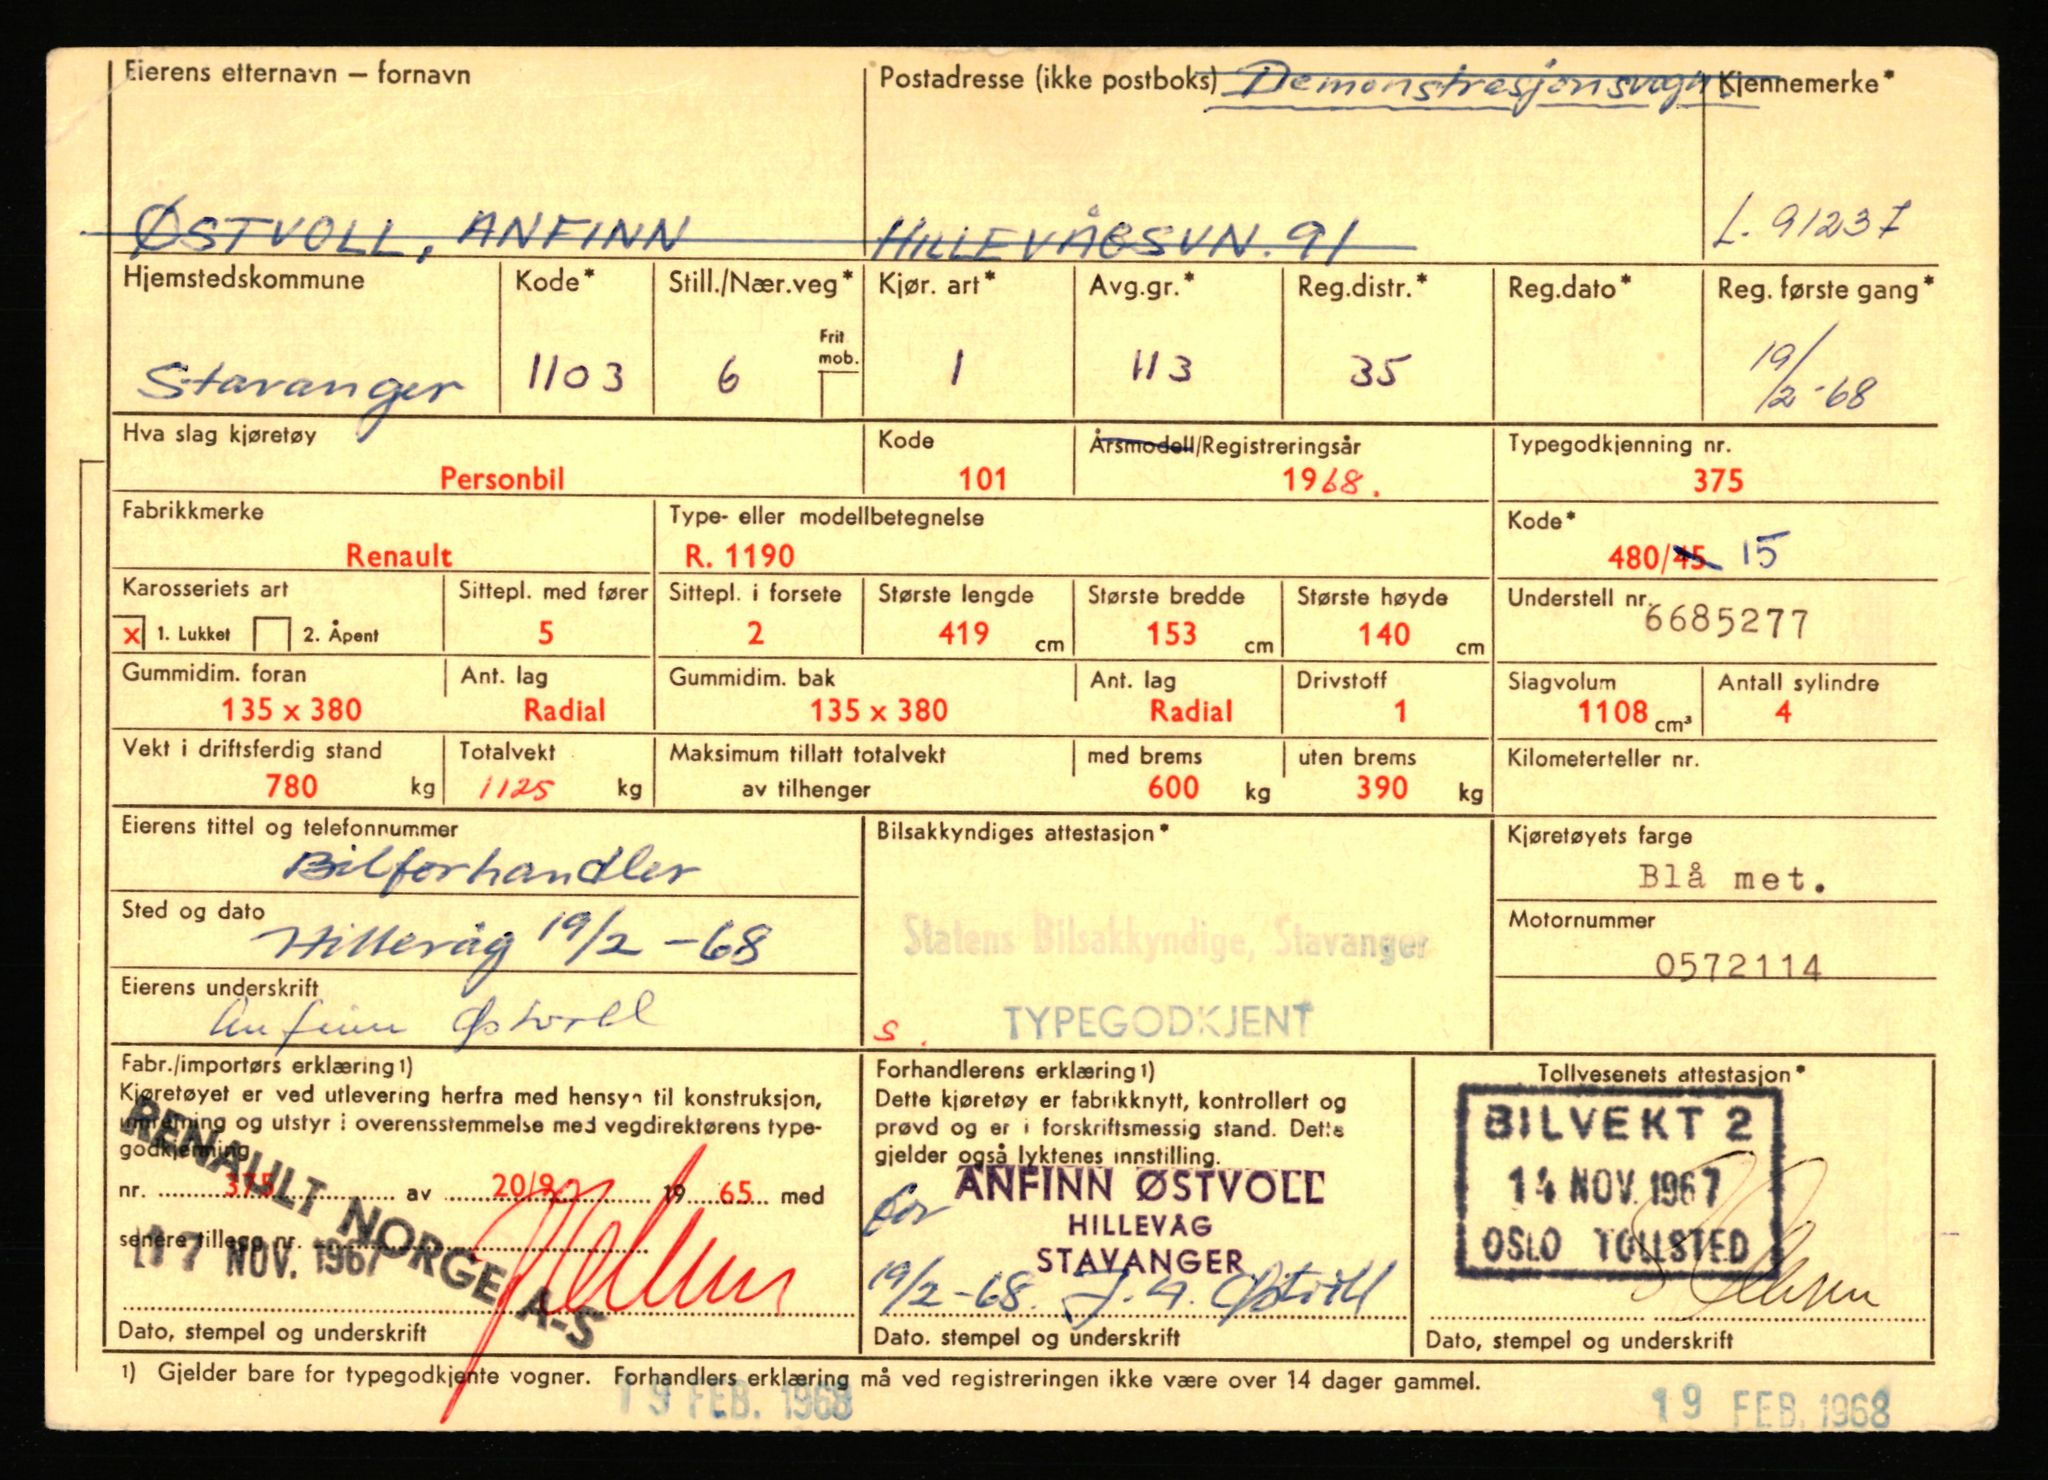 Eierens etternavn – fornavn
Postadresse (ikke postboks) Demonstrasjonsvogn
Kjennemerke*
ØSTVOLL, ANFINN
HILLEVÅGSVN. 91
L. 91237
Hjemstedskommune Kode* Still./Nær.veg* Kjør. art* Avg.gr.* Reg.distr.* Reg.dato* Reg. første gang*
Frit mob.
Stavanger 1103 6 1 113 35 19/2-68
Hva slag kjøretøy Kode Årsmodell/Registreringsår Typegodkjenning nr.
Personbil 101 1968. 375
Fabrikkmerke Type- eller modellbetegnelse Kode*
Renault R. 1190 480/45 15
Karosseriets art Sittepl. med fører Sittepl. i forsete Største lengde Største bredde Største høyde Understell nr.
x 1. Lukket 2. Åpent 5 2 419 cm 153 cm 140 cm 6685277
Gummidim. foran Ant. lag Gummidim. bak Ant. lag Drivstoff Slagvolum Antall sylindre
135 x 380 Radial 135 x 380 Radial 1 1108 cm³ 4
Vekt i driftsferdig stand Totalvekt Maksimum tillatt totalvekt med brems uten brems Kilometerteller nr.
780 kg 1125 kg av tilhenger 600 kg 390 kg
Eierens tittel og telefonnummer Bilsakkyndiges attestasjon* Kjøretøyets farge
Bilforhandler Blå met.
Sted og dato Motornummer
Hillevåg 19/2-68 Statens Bilsakkyndige, Stavanger 0572114
Eierens underskrift
Anfinn Østvoll s. TYPEGODKJENT
Fabr./importørs erklæring 1)
Kjøretøyet er ved utlevering herfra med hensyn til konstruksjon,
utrustning og utstyr i overensstemmelse med vegdirektørens type-
godkjenning
nr. 375 av 20/9 1965 med
senere tillegg nr.
RENAULT NORGE A-S
17 NOV. 1967
Dato, stempel og underskrift
Forhandlerens erklæring 1)
Dette kjøretøy er fabrikknytt, kontrollert og
prøvd og er i forskriftsmessig stand. Dette
gjelder også lyktenes innstilling.
for ANFINN ØSTVOLL
HILLEVÅG
STAVANGER
19/2-68. J. A. Østvoll
Dato. stempel og underskrift
Tollvesenets attestasjon*
BILVEKT 2
14 NOV. 1967
OSLO TOLLSTED
Dato, stempel og underskrift
1) Gjelder bare for typegodkjente vogner. Forhandlers erklæring må ved registreringen ikke være over 14 dager gammel.
19 FEB. 1968
19 FEB. 1968